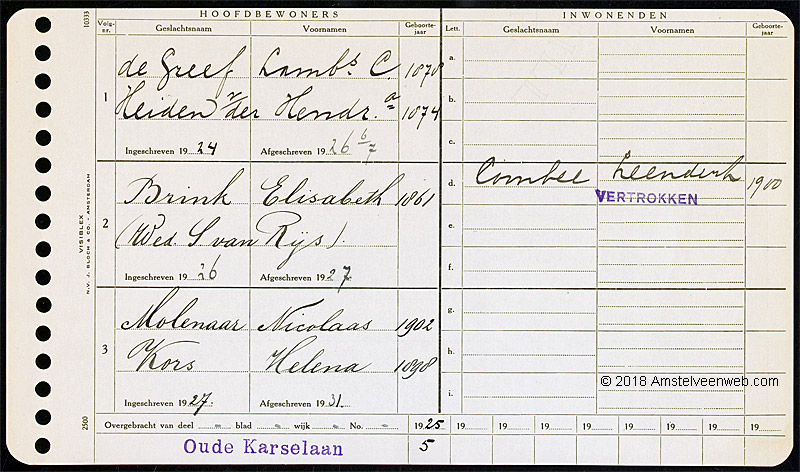 HOOFDBEWONERS
INWONENDEN
Volg-nr. Geslachtsnaam Voornamen Geboorte-jaar
Lett. Geslachtsnaam Voornamen Geboorte-jaar
1
de Greef Lambs. C. 1878
Heiden v der Hendr.a 1874
Ingeschreven 19 24 Afgeschreven 19 26 6/7
2
Brink Elisabeth 1861
(Wed. S van Rijs).
Ingeschreven 19 26 Afgeschreven 19 27
3
Molenaar Nicolaas 1902
Kors Helena 1898
Ingeschreven 19 27. Afgeschreven 19 31.
a.
b.
c.
d. Combee Leendert 1900
VERTROKKEN
e.
f.
g.
h.
i.
© 2018 Amstelveenweb.com
Overgebracht van deel „ blad „ wijk „ No. „ 1925 19 19 19 19 19 19 19
Oude Karselaan 5
10333
VISIBLEX
N.V. J. BLOCH & CO. - AMSTERDAM
2500